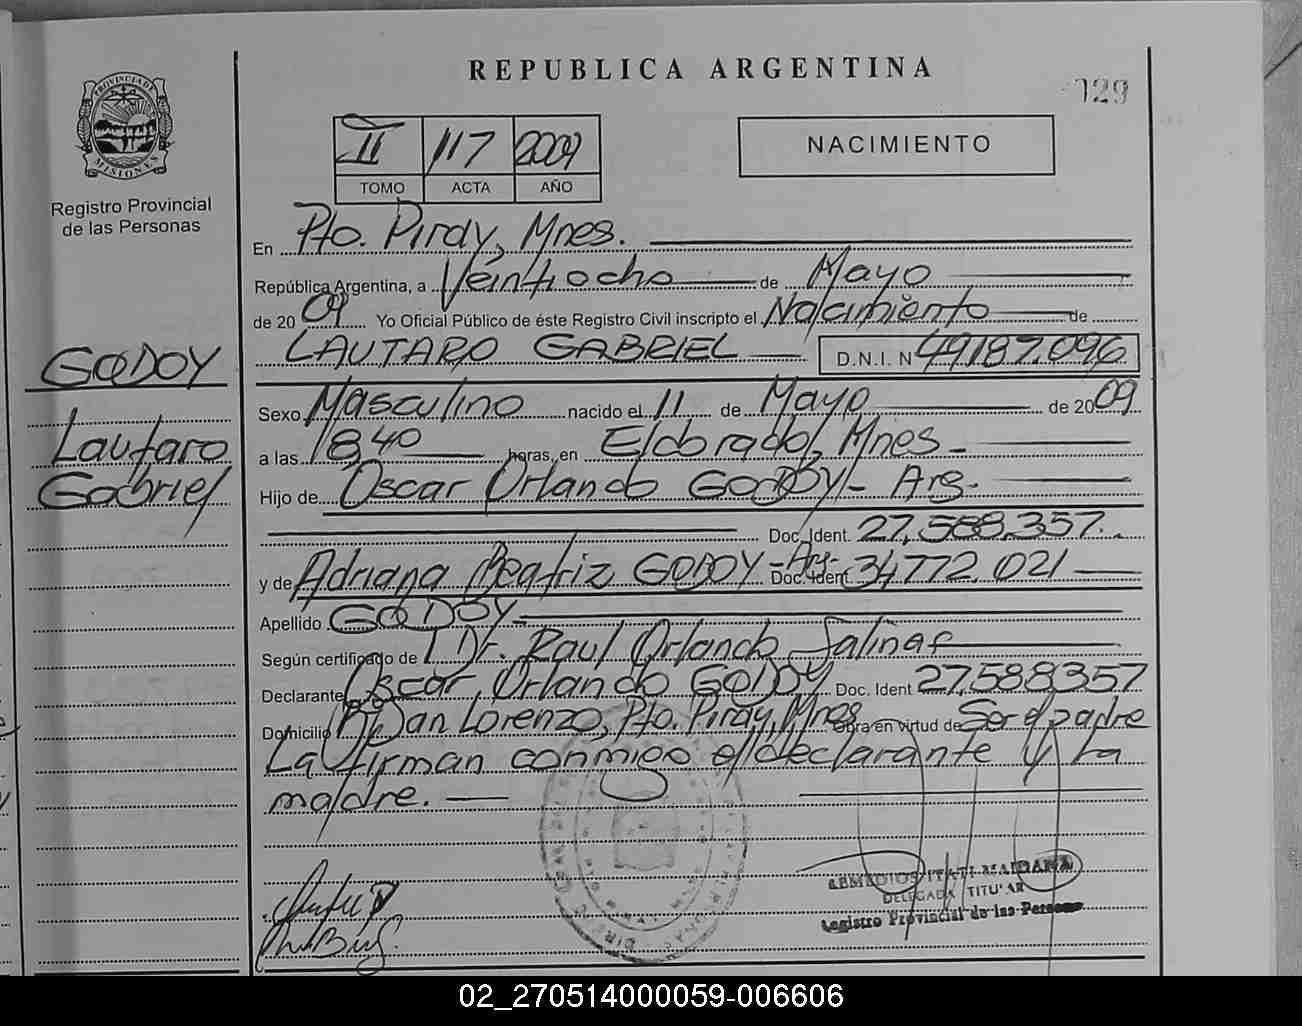 REPUBLICA ARGENTINA
129
PROVINCIA DE MISIONES
Registro Provincial
de las Personas
II 117 2009
TOMO ACTA AÑO
NACIMIENTO
En Pto. Piray, Mnes.
República Argentina, a Veintiocho de Mayo
de 2009 Yo Oficial Público de éste Registro Civil inscripto el Nacimiento de
LAUTARO GABRIEL D.N.I. N 49187.096
GODOY
Lautaro
Gabriel
Sexo Masculino nacido el 11 de Mayo de 2009
a las 18,40 horas, en Eldorado, Mnes -
Hijo de Oscar Orlando GODOY - Arg.
Doc. Ident. 27.588.357.
y de Adriana Beatriz GODOY - Arg. Doc. Ident 34772.021
Apellido GODOY
Según certificado de Dr. Raul Orlando Salinas
Declarante Oscar Orlando GODOY Doc. Ident 27.588357
Domicilio San Lorenzo, Pto. Piray, Mnes Obra en virtud de Ser el padre
La firman conmigo el declarante y la
madre.
ITATI MAIDANA
DELEGADA TITULAR
Registro Provincial de las Personas
02_270514000059-006606